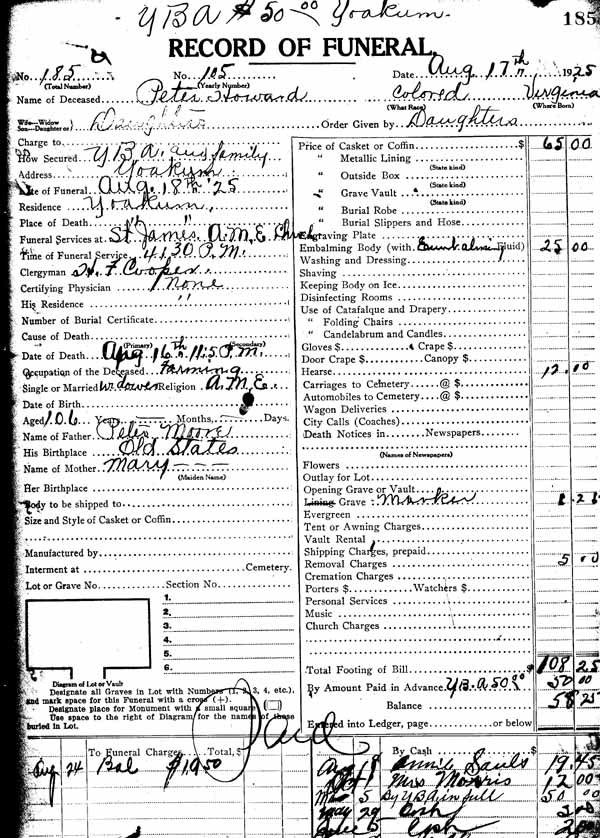 YBA $50.00 Yoakum.
185
RECORD OF FUNERAL
No. 185 (Total Number) No. 105 (Yearly Number) Date Aug. 17th, 1925
Name of Deceased Peter Howard colored (What Race) Virginia (Where Born)
Wife—Widow Son—Daughter of Order Given by Daughters
Charge to
How Secured YBA. and family
Address Yoakum
Date of Funeral Aug. 18th '25
Residence Yoakum,
Place of Death " "
Funeral Services at St James A.M.E. Church
Time of Funeral Service 4:30 P.M.
Clergyman H. F. Cooper
Certifying Physician None
His Residence "
Number of Burial Certificate
Cause of Death (Primary) (Secondary)
Date of Death Aug 16th 11:50 P.M.
Occupation of the Deceased Farming
Single or Married Widower Religion A.M.E.
Date of Birth
Aged 106 Years, Months, Days.
Name of Father Peter Moore
His Birthplace Old States
Name of Mother Mary (Maiden Name)
Her Birthplace
Body to be shipped to
Size and Style of Casket or Coffin
Manufactured by
Interment at Cemetery.
Lot or Grave No. Section No.
1.
2.
3.
4.
5.
6.
Diagram of Lot or Vault
Designate all Graves in Lot with Numbers (1, 2, 3, 4, etc.),
and mark space for this Funeral with a cross (+).
Designate place for Monument with a small square
Use space to the right of Diagram for the names of those
buried in Lot.
Price of Casket or Coffin $ 65 00
" Metallic Lining (State kind)
" Outside Box (State kind)
" Grave Vault (State kind)
" Burial Robe
" Burial Slippers and Hose
Engraving Plate
Embalming Body (with Embalming Fluid) 25 00
Washing and Dressing
Shaving
Keeping Body on Ice
Disinfecting Rooms
Use of Catafalque and Drapery
" Folding Chairs
" Candelabrum and Candles
Gloves $ Crape $
Door Crape $ Canopy $
Hearse 12.00
Carriages to Cemetery @ $
Automobiles to Cemetery @ $
Wagon Deliveries
City Calls (Coaches)
Death Notices in Newspapers
(Names of Newspapers)
Flowers
Outlay for Lot
Opening Grave or Vault
Lining Grave Marker
Evergreen
Tent or Awning Charges
Vault Rental
Shipping Charges, prepaid
Removal Charges 5 00
Cremation Charges
Porters $ Watchers $
Personal Services
Music
Church Charges
Total Footing of Bill $ 108 25
By Amount Paid in Advance Y.B.A 50.00 50 00
Balance 58 25
Entered into Ledger, page or below
Paid
To Funeral Charges Total, $
Aug 24 Bal $19.50
By Cash $
Aug 18 Annie Sauls 19.45
1 Mrs Morris 12 00
5 By YBA in full 50 00
29 Cash
Cash